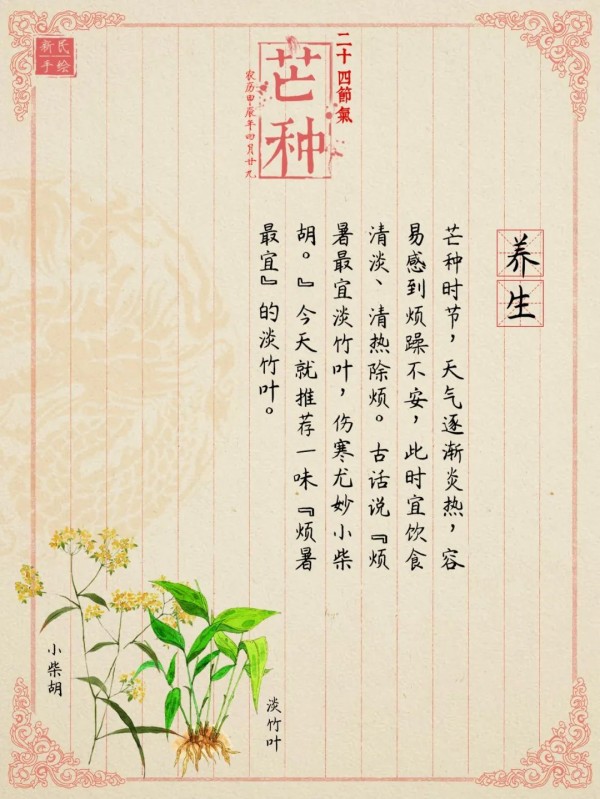 新氏
手绘
二十四節氣
芒种
农历甲辰年四月廿九
养生
芒种时节，天气逐渐炎热，容
易感到烦躁不安，此时宜饮食
清淡、清热除烦。古话说『烦
暑最宜淡竹叶，伤寒尤妙小柴
胡。』今天就推荐一味『烦暑
最宜』的淡竹叶。
小柴胡
淡竹叶